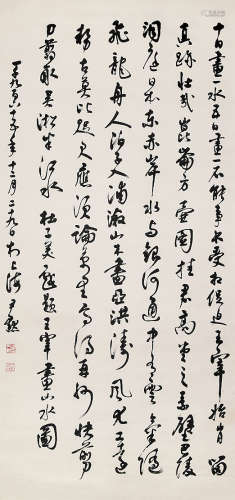 十日畫一水五日畫一石能事不受相促迫王宰始肯留
真跡壯哉崑崙方壺圖挂君高堂之素壁巴陵
洞庭日本東赤岸水與銀河通中有雲氣隨
飛龍舟人漁子入浦漵山木盡亞洪濤風尤工遠
勢古莫比咫尺應須論萬里焉得并州快剪
刀翦取吳淞半江水杜子美戲題王宰畫山水圖
年十二月二十九日於上海尹默